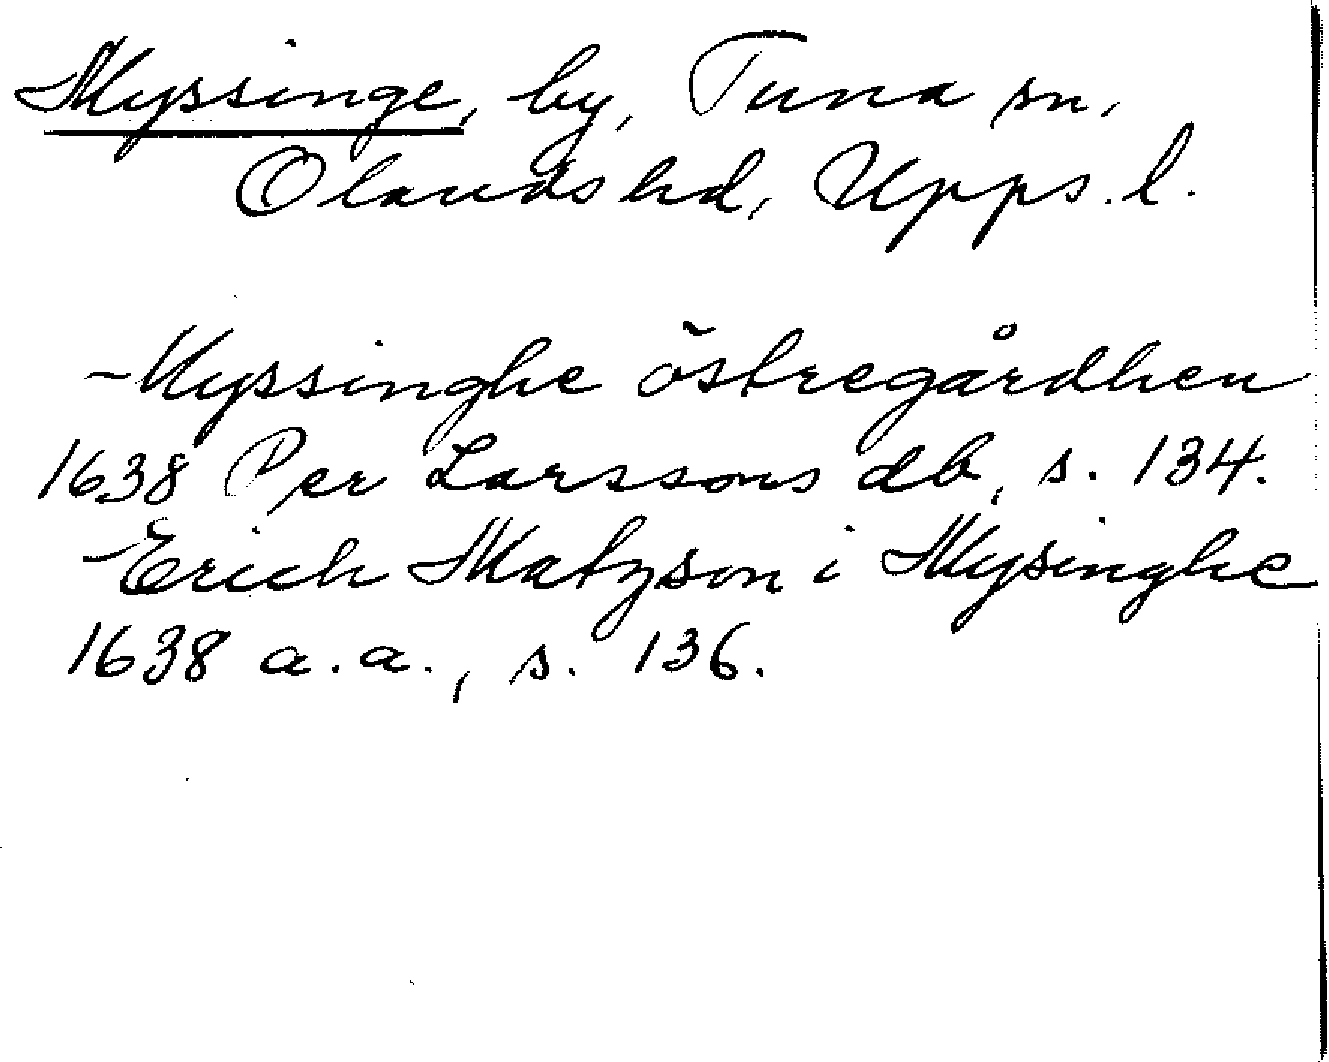 Myssinge, by, Tuna sn,
Olands hd, Upps. l.
- Myssinghe östregårdhen
1638 Per Larssons db, s. 134.
- Erich Matzson i Mysinghe
1638 a.a., s. 136.